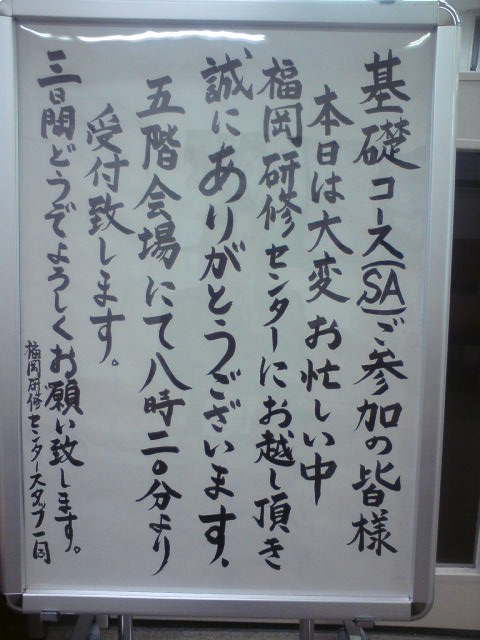 基礎コース(SA)ご参加の皆様
本日は大変お忙しい中
福岡研修センターにお越し頂き
誠にありがとうございます。
五階会場にて八時二〇分より
受付致します。
三日間どうぞよろしくお願い致します。
福岡研修センタースタッフ一同